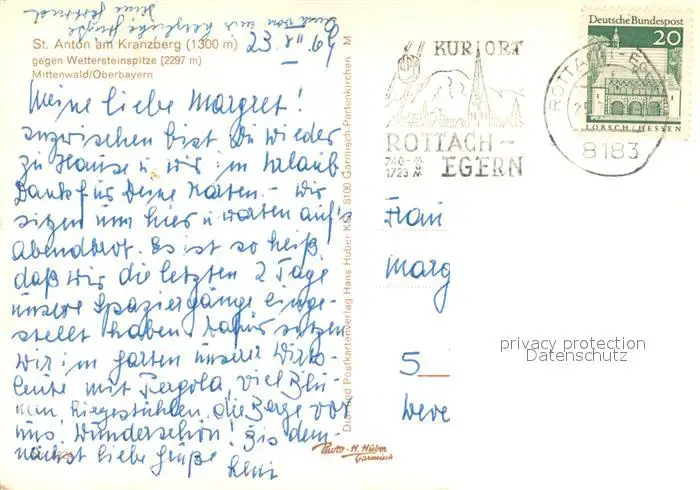 St. Anton am Kranzberg (1300 m)
gegen Wettersteinspitze (2297 m)
Mittenwald/Oberbayern
23. VII 69
Meine liebe Margret!
inzwischen bist Du wieder
zu Hause u. wir im Urlaub
Dank für Deine Karten – wir
sitzen nun hier u warten auf's
Abendbrot. Es ist so heiß,
daß wir die letzten 2 Tage
unsere Spaziergänge einge-
stellt haben. Dafür sitzen
wir im Garten unserer Wirts-
leute mit Pergola, viel Blu-
men, Liegestühlen, die Berge vor
uns! Wunderschön! Bis dem-
nächst liebe Grüße
Dia- und Postkartenverlag Hans Huber KG, 8100 Garmisch-Partenkirchen M
Photo-H. Huber
Garmisch
KURORT
ROTTACH-
EGERN
740-
1723 m
ROTTACH-E
8183
Deutsche Bundespost
20
LORSCH/HESSEN
Frau
Marg
5
privacy protection
Datenschutz